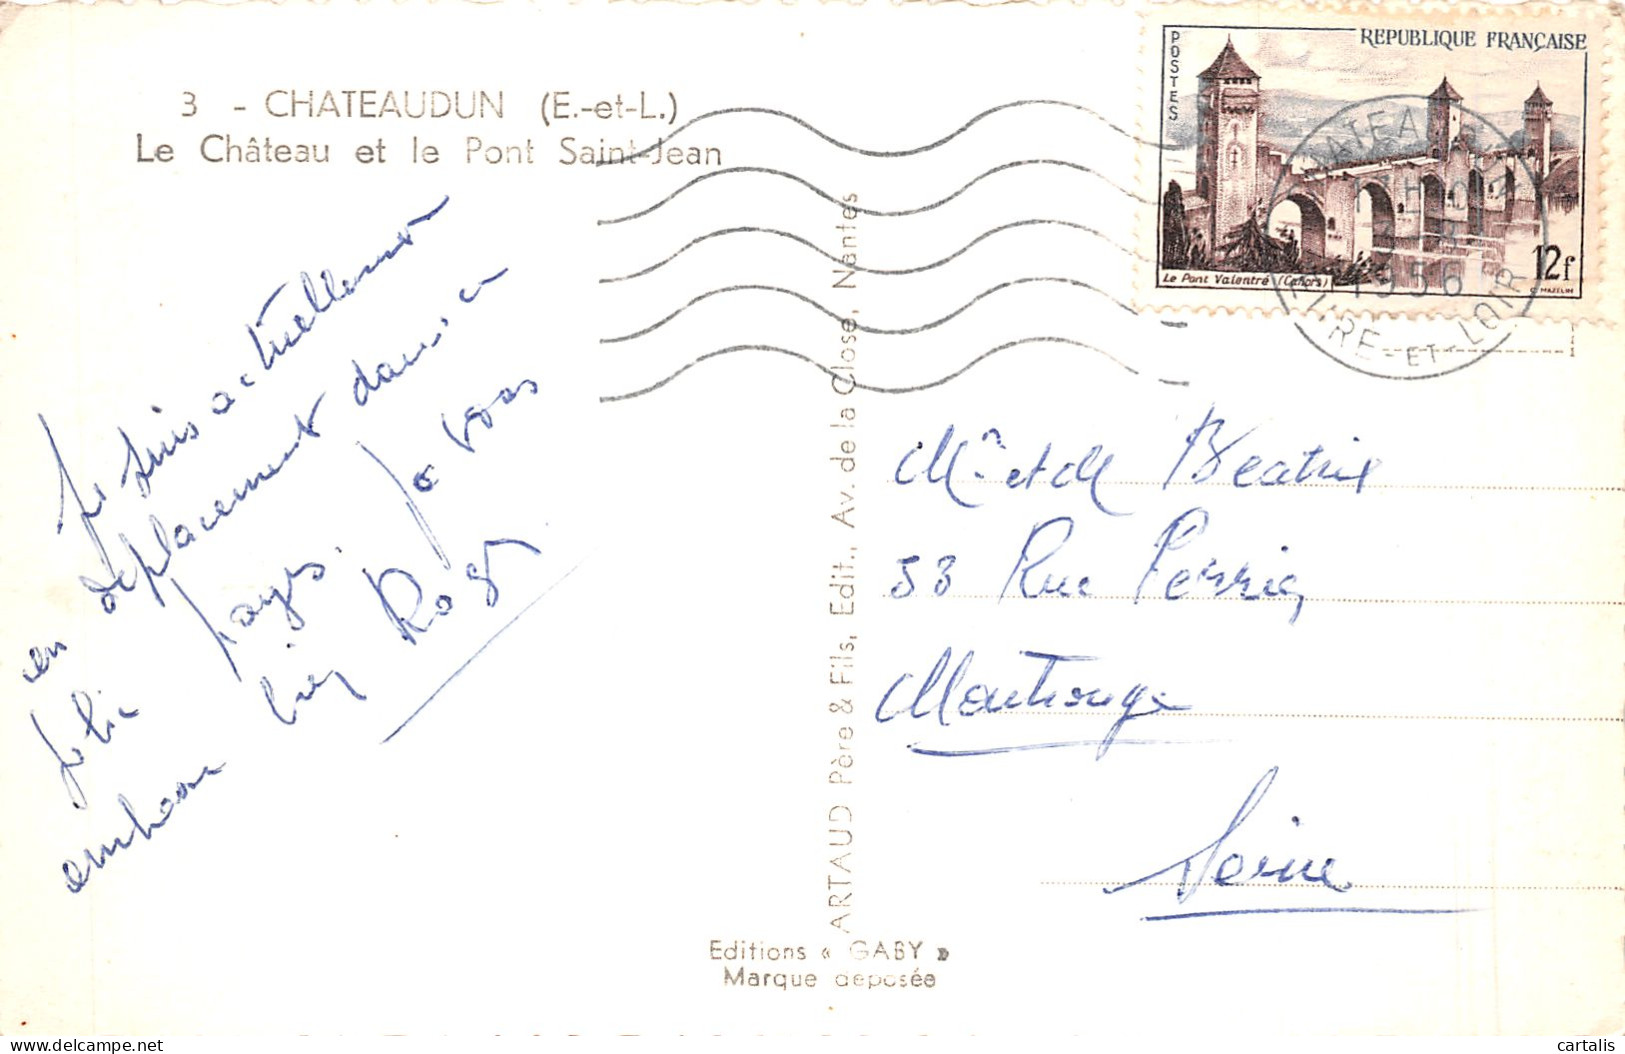 3 - CHATEAUDUN (E.-et-L.)
Le Château et le Pont Saint-Jean
Je suis actuellement
en déplacement dans ce
joli pays. Je vous
embrasse bien Roger
ARTAUD Père & Fils, Edit., Av. de la Close, Nantes
Editions « GABY »
Marque déposée
POSTES
REPUBLIQUE FRANÇAISE
Le Pont Valentré (Cahors)
12f
C. MAZELIN
CHATEAUDUN
1956
EURE-ET-LOIR
Mr et M Beatrix
58 Rue Perrier
Montrouge
Seine
cartalis